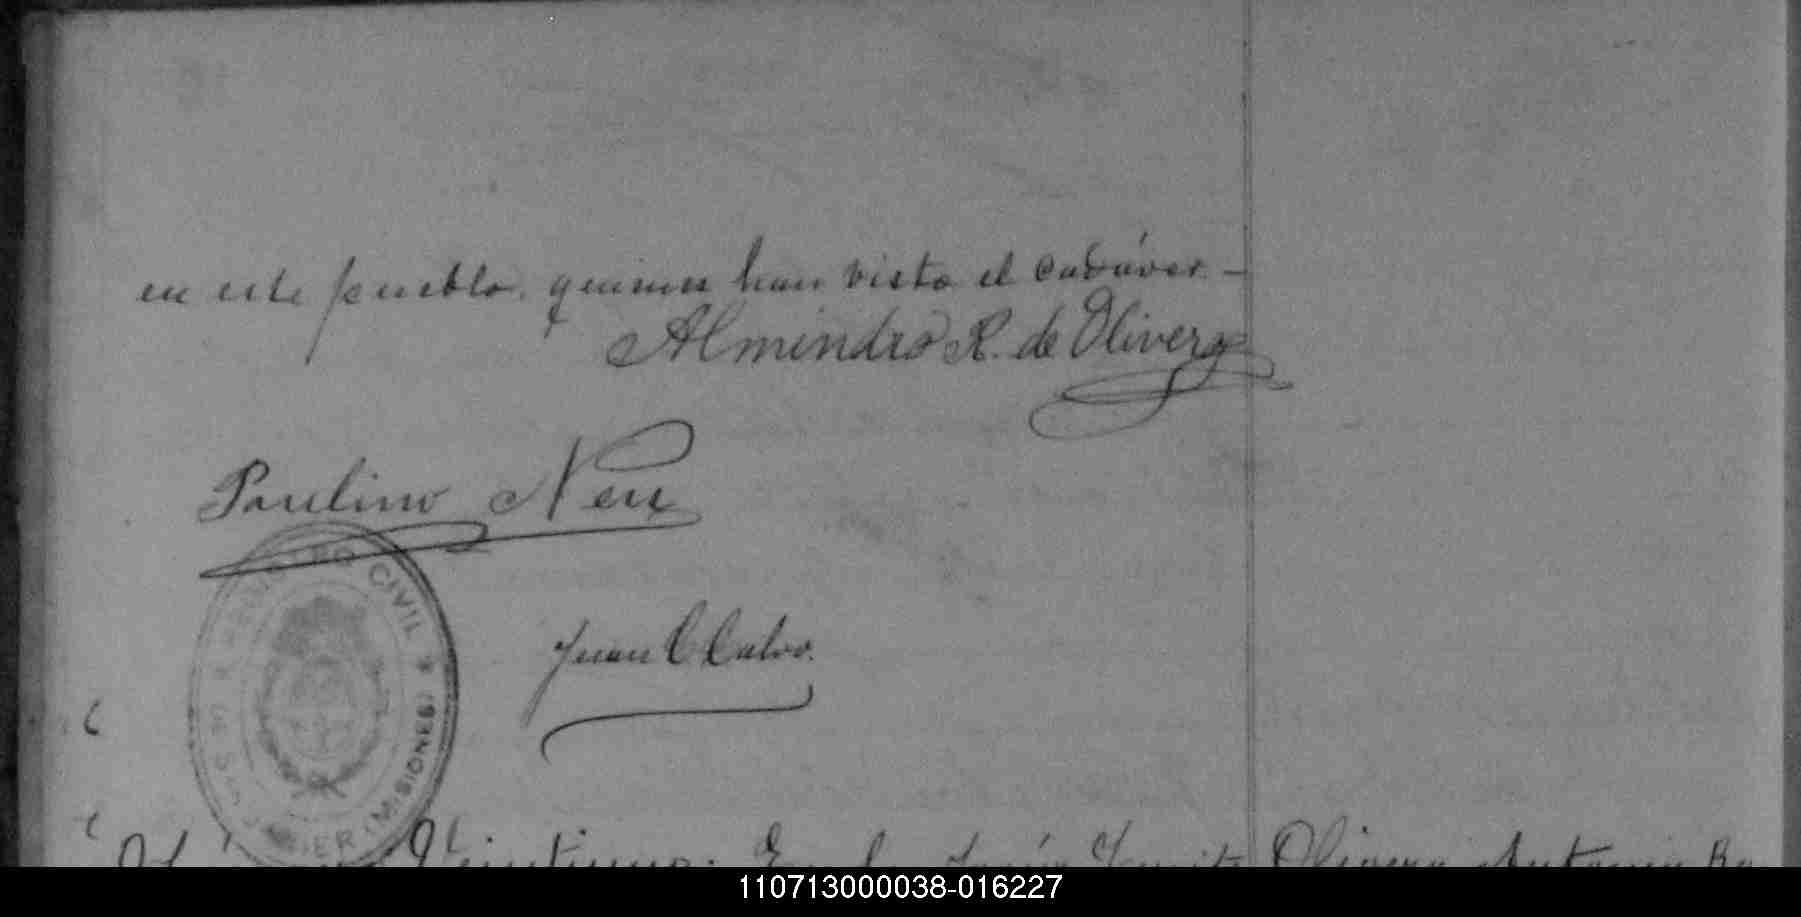 en este pueblo, quienes han visto el cadáver –
Almindro R. de Olivera
Paulino Neu
REGISTRO CIVIL
DE SAN JAVIER (MISIONES)
Juan C Calvo.
Veintiuno.
Olivera Antonio
110713000038-016227